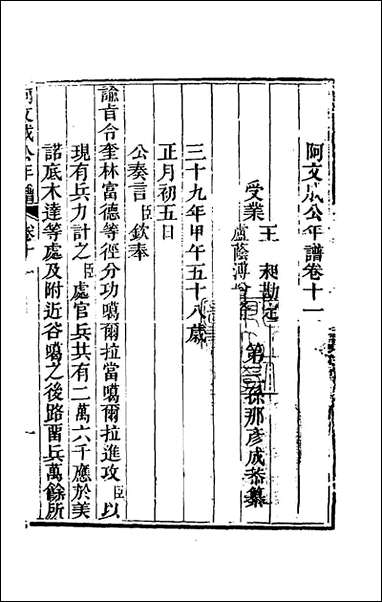 阿文成公年譜卷十一
第三孫那彥成恭纂
受業
王昶勘定
盧蔭溥
三十九年甲午五十八歲
正月初五日
公奏言臣欽奉
諭旨令奎林富德等徑分功噶爾拉當噶爾拉進攻臣以
現有兵力計之臣處官兵共有二萬六千應於美
諾底木達等處及附近谷噶之後路畱兵萬餘所
阿文成公年譜
卷十一
一